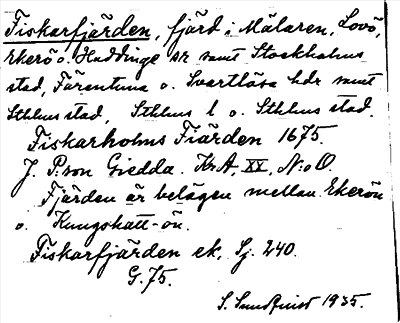 Fiskarfjärden, fjärd i Mälaren, Lovö,
Ekerö o. Huddinge sr samt Stockholms
stad, Färentuna o. Svartlösa hdr samt
Sthlms stad, Sthlms l o. Sthlms stad.
Fiskarholms Fiärden 1675.
J. P:son Giedda. KrA, XX, N:o O.
Fjärden är belägen mellan Ekerön
o. Kungshatt-ön.
Fiskarfjärden ek. Sj. 240.
G. 75.
S. Sundquist 1935.